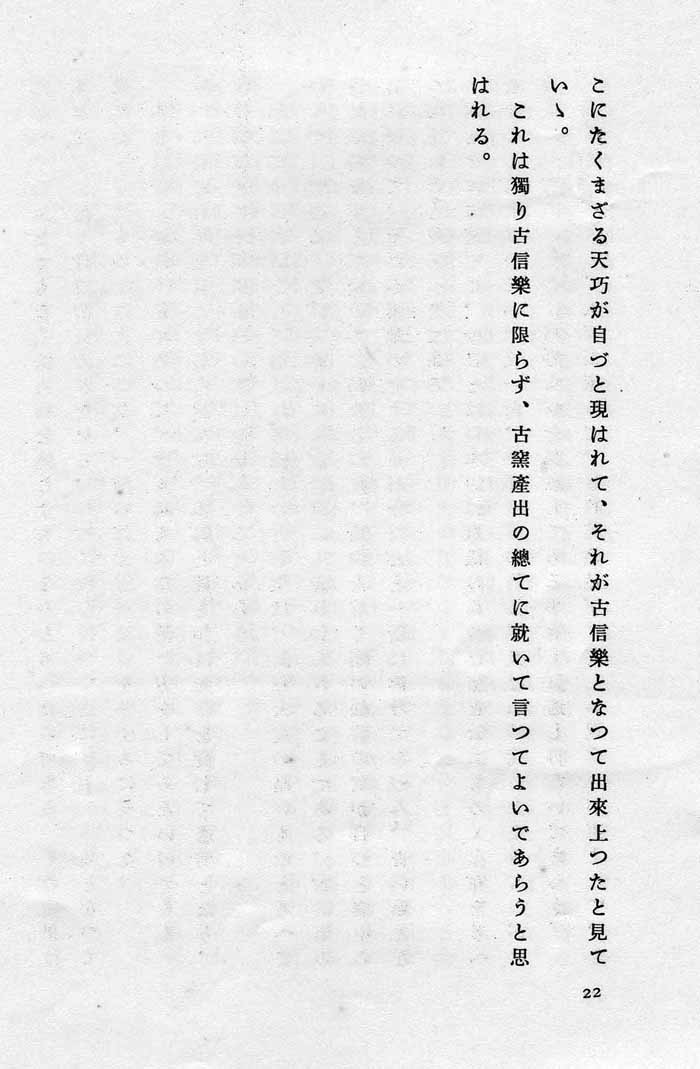 こにたくまざる天巧が自づと現はれて、それが古信樂となつて出來上つたと見て
いゝ。
これは獨り古信樂に限らず、古窯產出の總てに就いて言つてよいであらうと思
はれる。
22